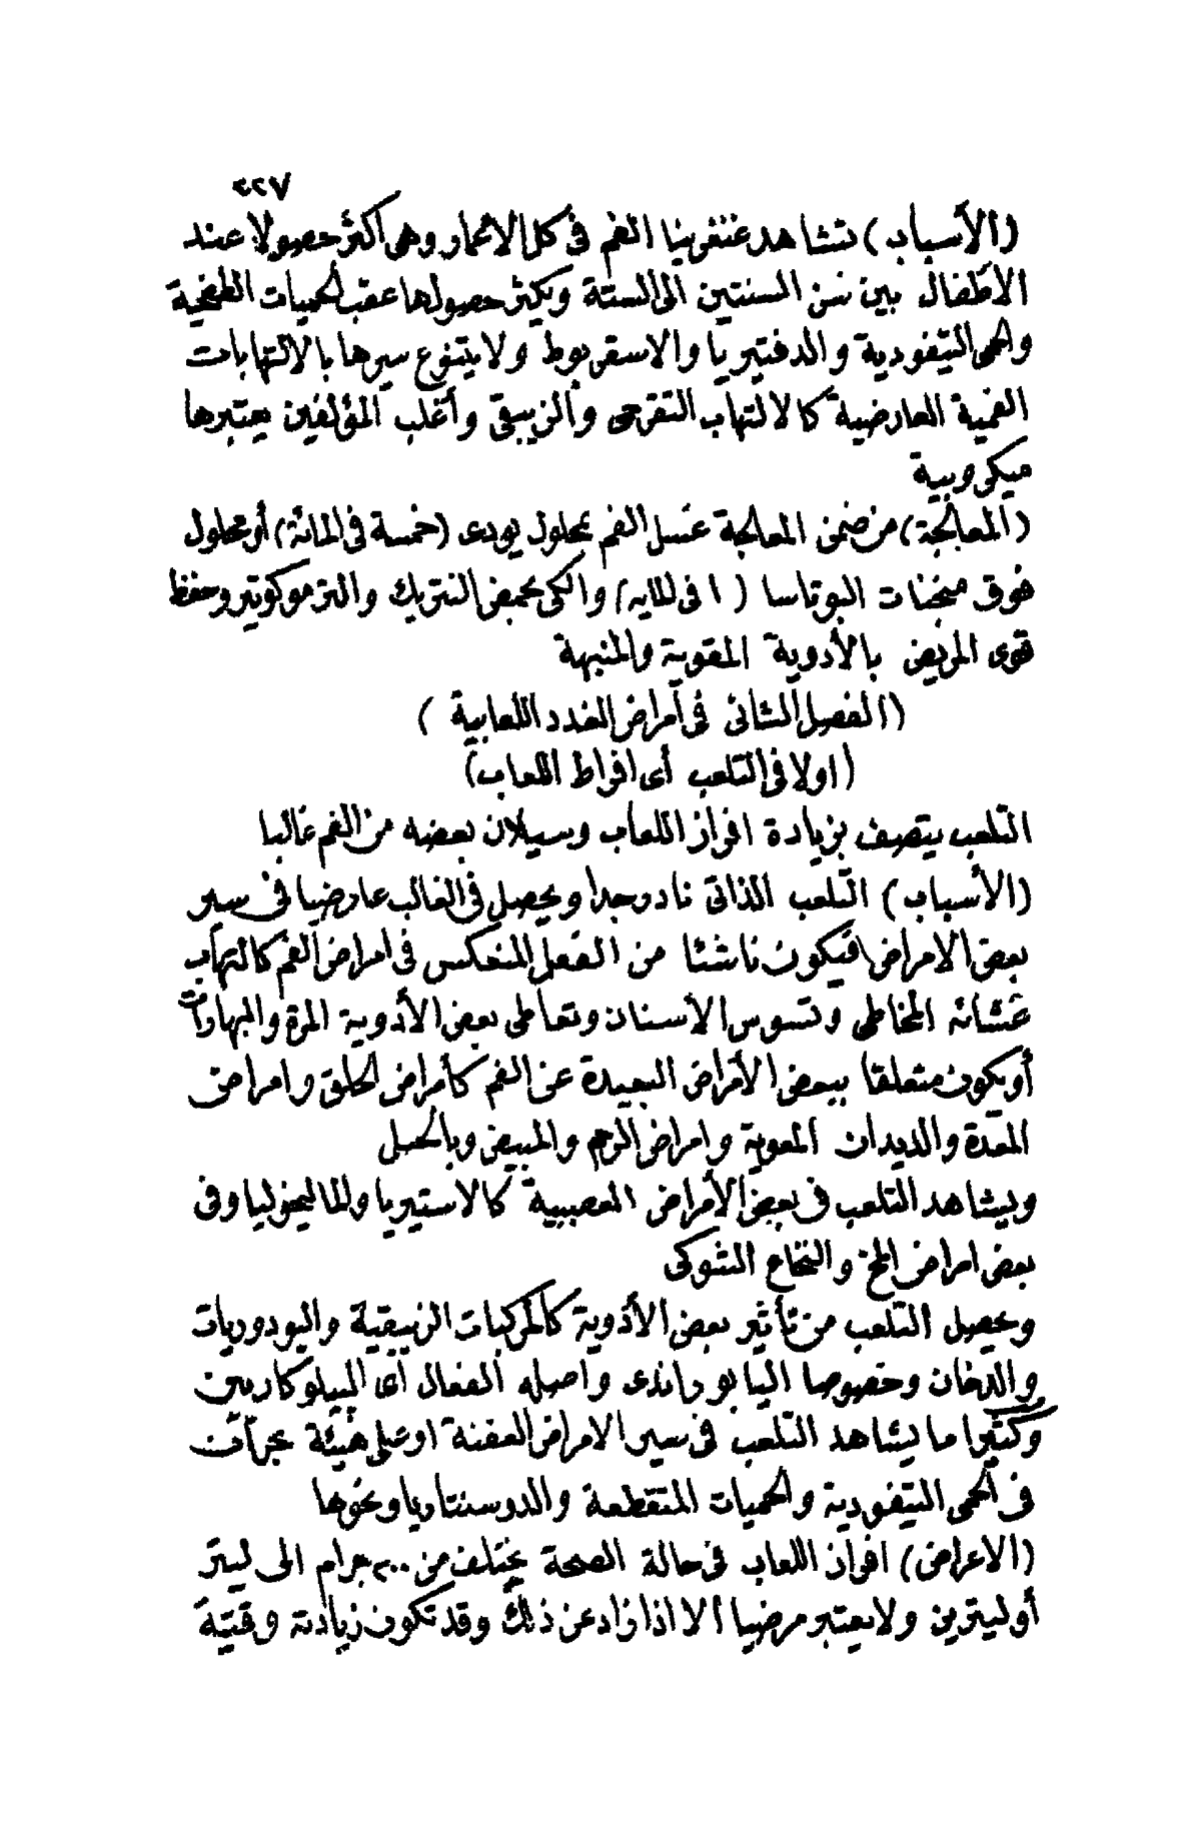 ٢٢٧
(الأسباب) تشاهد غنغرينا الفم فى كل الاعمار وهى أكثر حصولا عند
الاطفال بين سن السنتين الى الستة ويكثر حصولها عقب الحميات الطفحية
والحمى التيفودية والدفتيريا والاسقربوط ولا يتنوع سيرها بالالتهابات
الفمية العارضية كالالتهاب التقرحى والزيبقى وأغلب المؤلفين يعتبرها
ميكروبية
(المعالجة) من ضمن المعالجة غسل الفم بمحلول يودى (خمسة فى المائة) أو محلول
فوق منجنات البوتاسا (١ فى المايه) والكى بحمض النتريك والترموكوتير وحفظ
قوى المريض بالأدوية المقوية والمنبهة
(الفصل الثانى فى أمراض الغدد اللعابية)
(اولا فى التلعب أى افراط اللعاب)
التلعب يتصف بزيادة افراز اللعاب وسيلان بعضه من الفم غالبا
(الأسباب) التلعب الذاتى نادر جدا ويحصل فى الغالب عارضيا فى سير
بعض الامراض فيكون ناشئا من الفعل المنعكس فى امراض الفم كالتهاب
غشائه المخاطى وتسوس الأسنان وتعاطى بعض الأدوية المرة والبهارات
أو يكون متعلقا ببعض الأمراض البعيدة عن الفم كأمراض الحلق وامراض
المعدة والديدان المعوية وامراض الرحم والمبيض وبالحبل
ويشاهد التلعب فى بعض الأمراض العصبية كالاستيريا والماليخوليا وفى
بعض امراض المخ والنخاع الشوكى
ويحصل التلعب من تأثير بعض الأدوية كالمركبات الزيبقية واليودوريات
والدخان وخصوصا اليابوراندى واصله الفعال أى البيلوكاربين
وكثيرا ما يشاهد التلعب فى سير الامراض العفنة او على هيئة بحرانات
فى الحمى التيفودية والحميات المتقطعة والدوسنتاريا ونحوها
(الاعراض) افراز اللعاب فى حالة الصحة يختلف من ٣٠٠ جرام الى ليتر
أو ليترين ولا يعتبر مرضيا الا اذا زاد عن ذلك وقد تكون زيادته وقتية